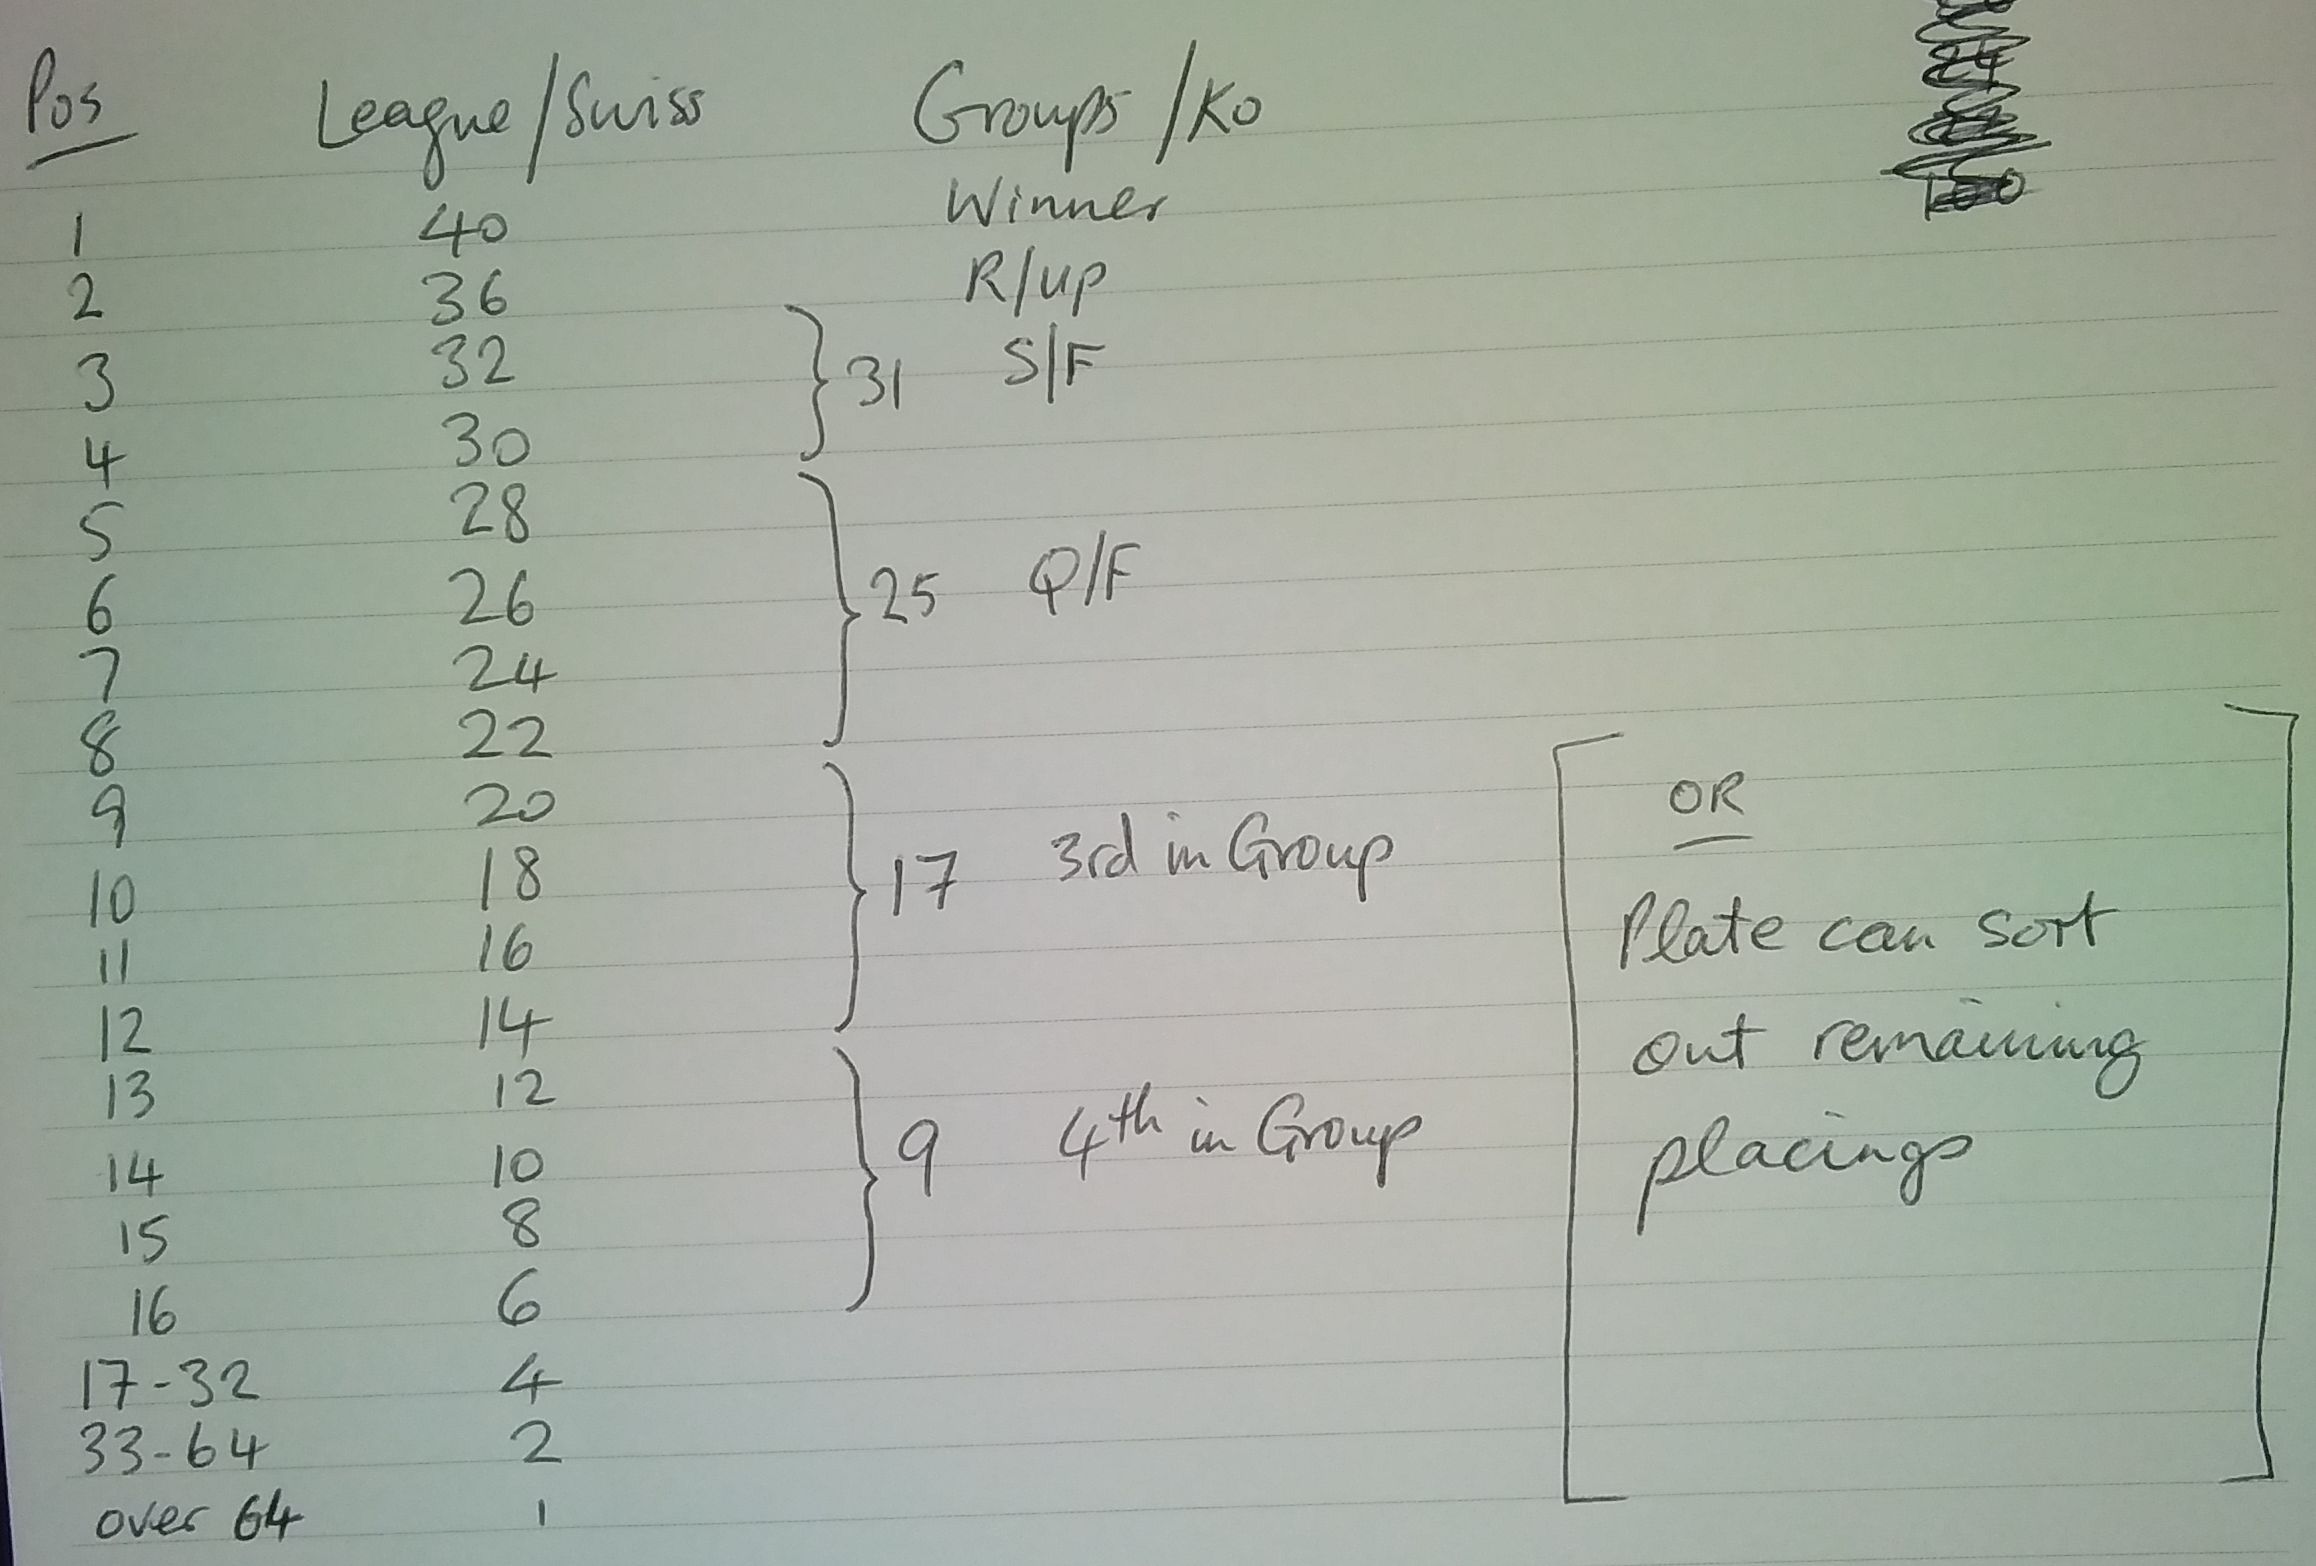 Pos League/Swiss Groups/KO
1 40 Winner
2 36 R/up
3 32 31 S/F
4 30
5 28
6 26 25 Q/F
7 24
8 22
9 20 OR
10 18 17 3rd in Group
11 16 Plate can sort
12 14 out remaining
13 12
14 10 9 4th in Group placings
15 8
16 6
17-32 4
33-64 2
over 64 1